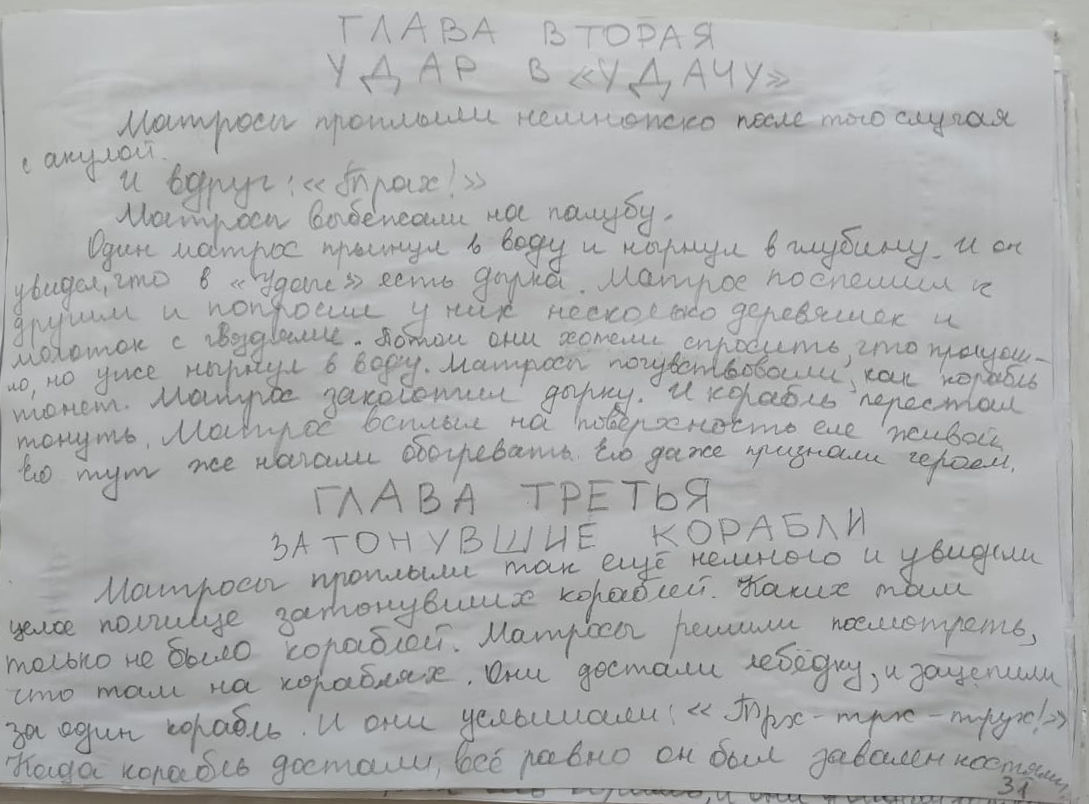 ГЛАВА ВТОРАЯ
УДАР В «УДАЧУ»
Матросы проплыли немножко после того случая
с акулой.
И вдруг: «Трах!»
Матросы выбежали на палубу.
Один матрос прыгнул в воду и нырнул в глубину. И он
увидел, что в «Удаче» есть дырка. Матрос поспешил к
другим и попросил у них несколько деревяшек и
молоток с гвоздями. Потом они хотели спросить, что произош-
ло, но уже нырнул в воду. Матросы почувствовали, как корабль
тонет. Матрос заколотил дырку. И корабль перестал
тонуть. Матрос всплыл на поверхность еле живой
Его тут же начали обогревать. Его даже признали героем.
ГЛАВА ТРЕТЬЯ
ЗАТОНУВШИЕ КОРАБЛИ
Матросы проплыли так ещё немного и увидели
целое полчище затонувших кораблей. Каких там
только не было кораблей. Матросы решили посмотреть,
что там на кораблях. Они достали лебёдку, и зацепили
за один корабль. И они услышали: «Трж-трж-труж!»
Када корабль достали, всё равно он был завален костями.
31